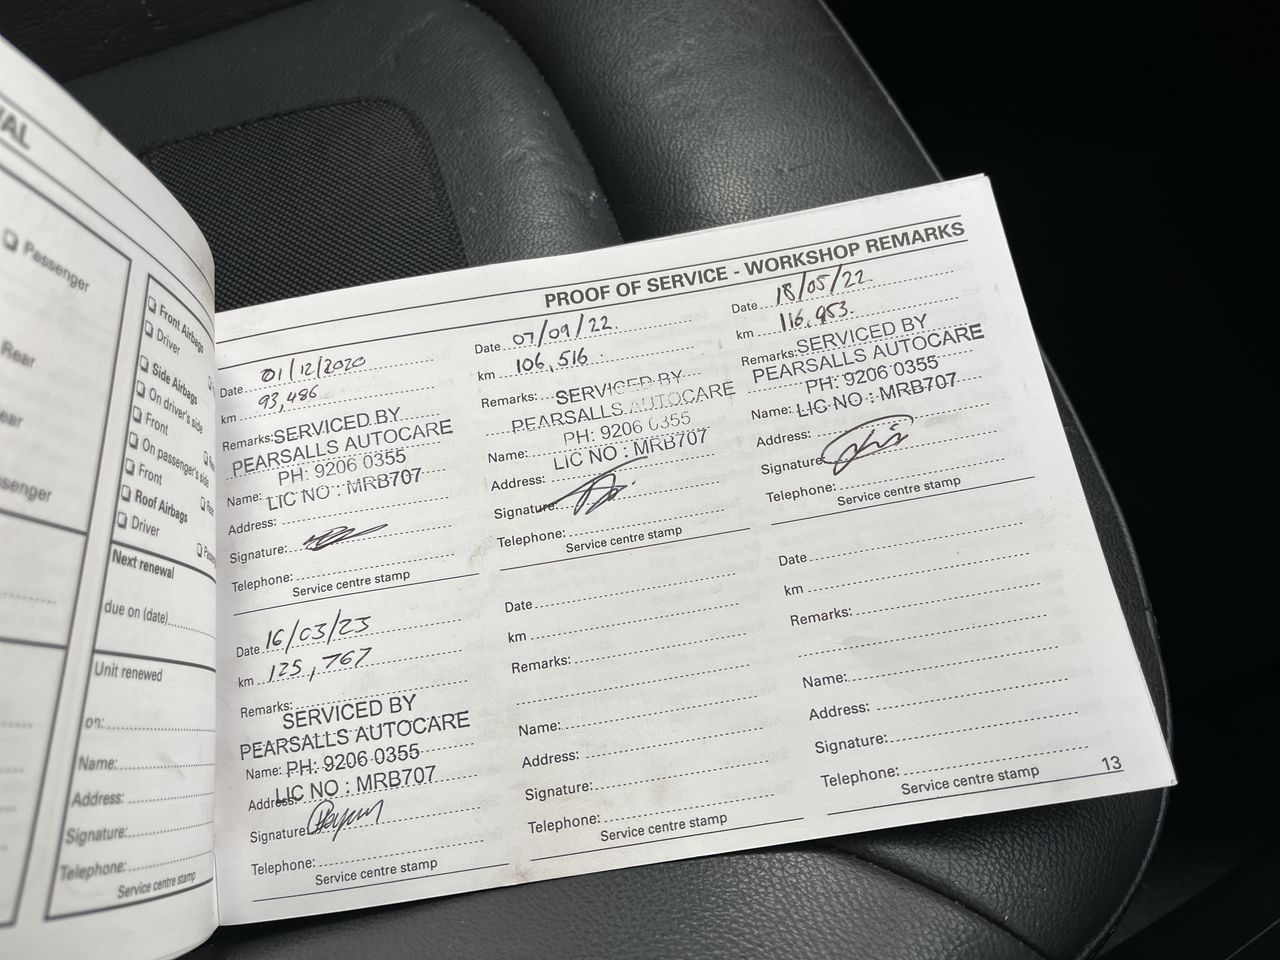 VAL
Passenger
Rear
ear
ssenger
Front Airbags
Driver
Side Airbags
On driver's side
Front
On passenger's side
Front
Roof Airbags
Driver
Next renewal
due on (date)
Unit renewed
on:
Name:
Address:
Signature:
Telephone:
Service centre stamp
PROOF OF SERVICE - WORKSHOP REMARKS
Date 01/12/2020
km 93,486
Remarks: SERVICED BY
PEARSALLS AUTOCARE
PH: 9206 0355
Name: LIC NO : MRB707
Address:
Signature:
Telephone:
Service centre stamp
Date 07/09/22.
km 106,516
Remarks: SERVICED BY
PEARSALLS AUTOCARE
PH: 9206 0355
Name: LIC NO : MRB707
Address:
Signature:
Telephone:
Service centre stamp
Date 18/05/22.
km 116,953.
Remarks: SERVICED BY
PEARSALLS AUTOCARE
PH: 9206 0355
Name: LIC NO : MRB707
Address:
Signature:
Telephone:
Service centre stamp
Date 16/03/23
km 125,767
Remarks:
SERVICED BY
PEARSALLS AUTOCARE
Name: PH: 9206 0355
Address: LIC NO : MRB707
Signature:
Telephone:
Service centre stamp
Date
km
Remarks:
Name:
Address:
Signature:
Telephone:
Service centre stamp
Date
km
Remarks:
Name:
Address:
Signature:
Telephone:
Service centre stamp
13